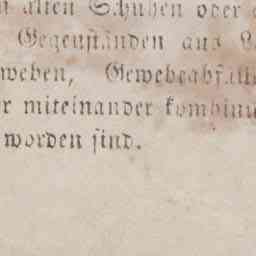 alten Schuhen oder
Gegenständen aus
weben, Gewebeabfäll
r miteinander kombini
worden sind.